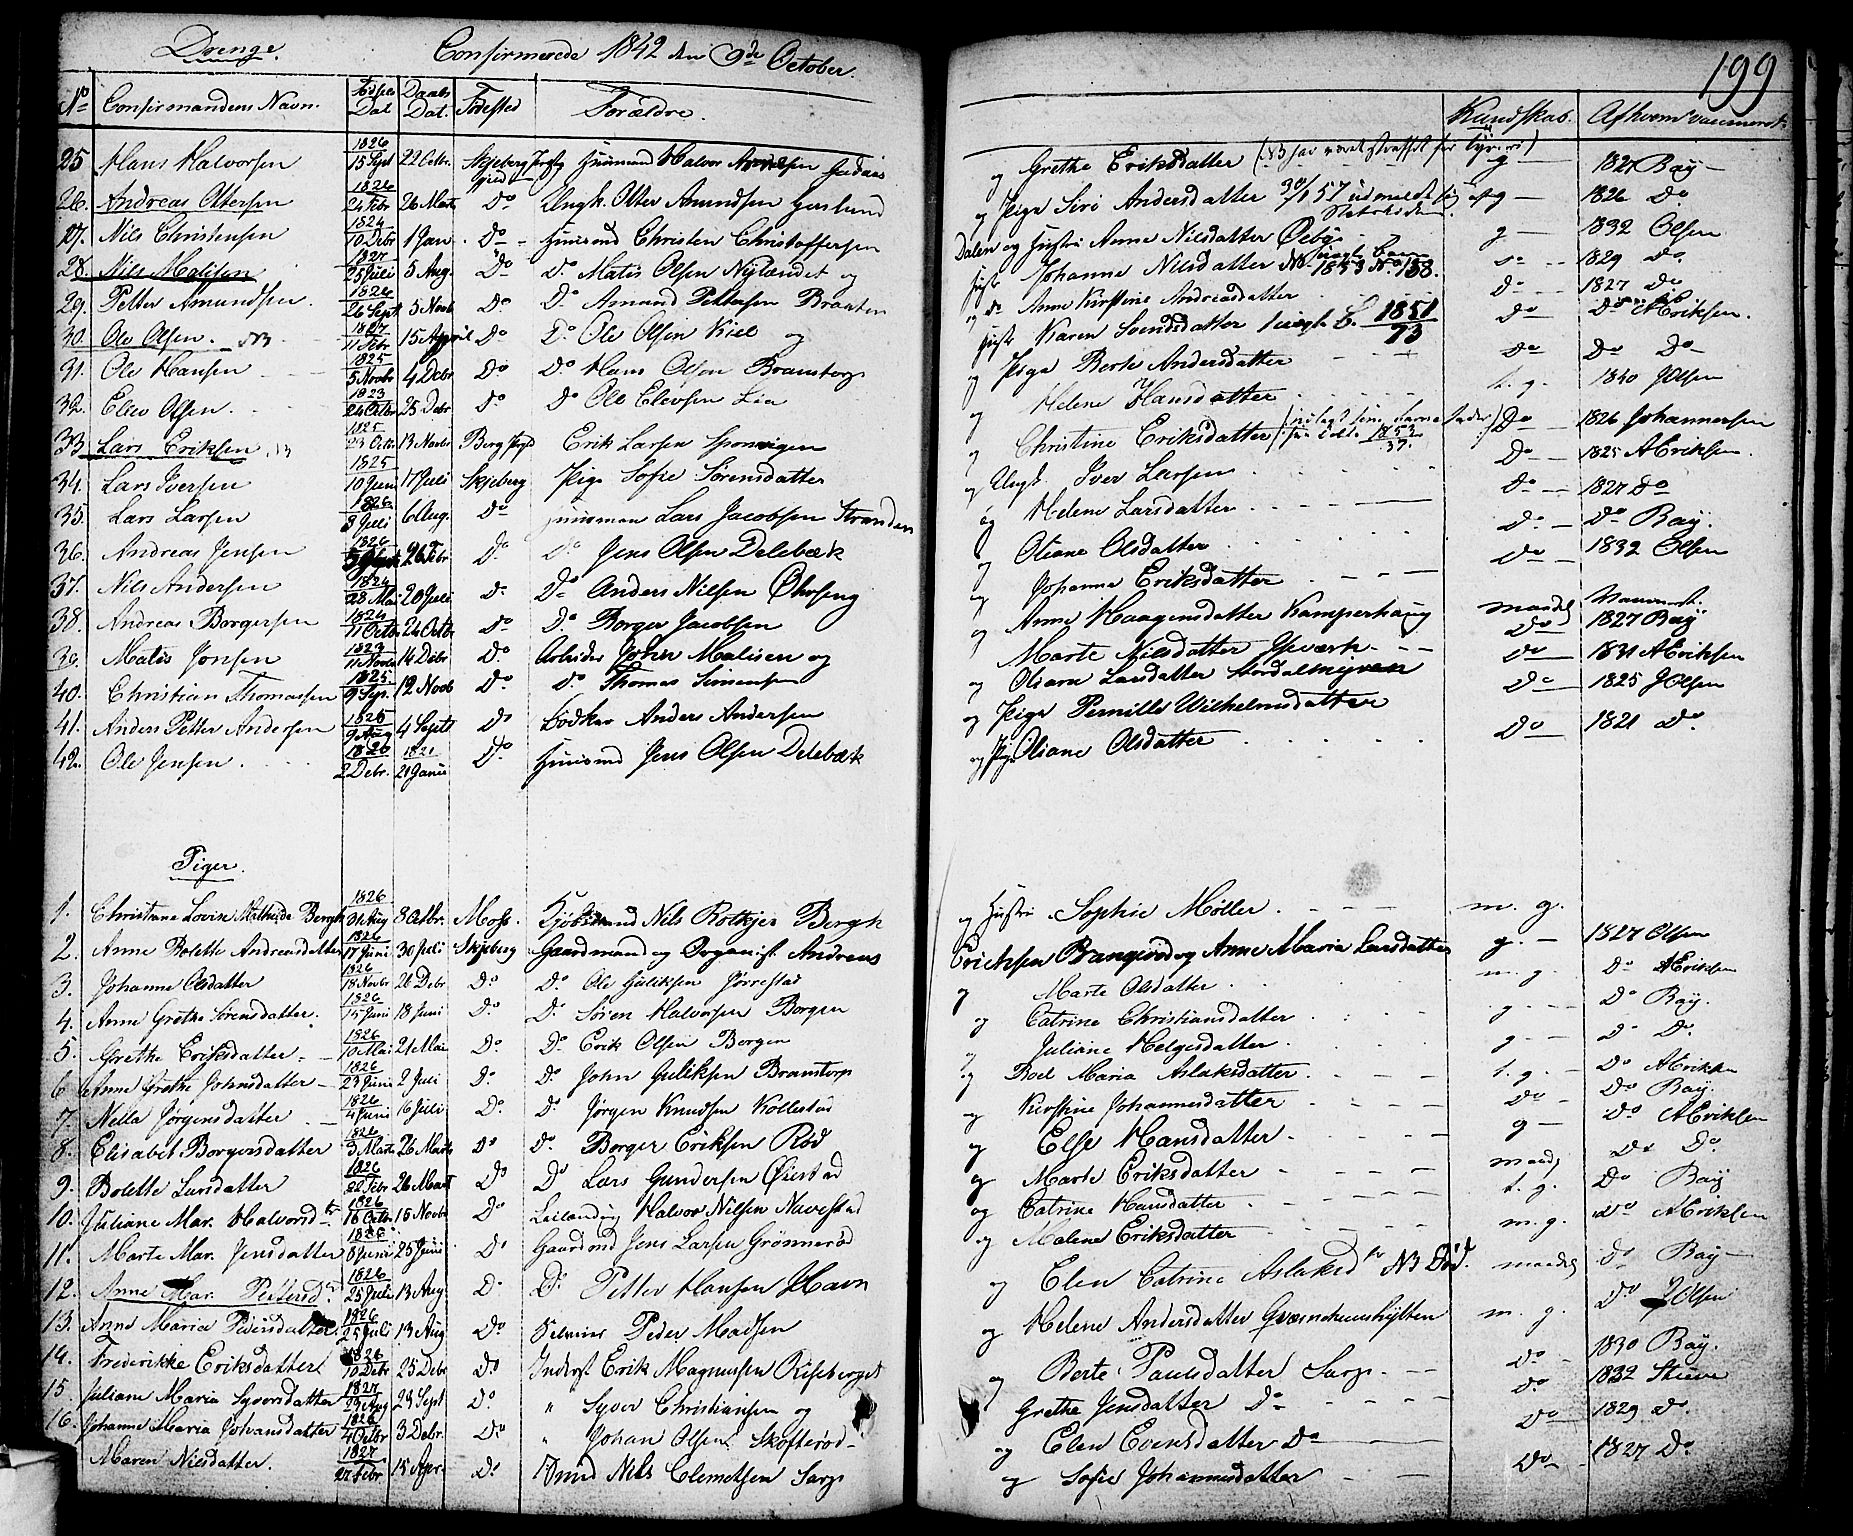 Drenge. Confirmerede 1842 den 9de October. 199
No Confirmandens Navn. Fødsels Dat Daabs Dat. Fødested Forældre. Kundskab. Af hvem vaccineret
25 Hans Halvorsen 1826 15 Sept 22 Octbr. Skjeberg Husmand Halvor og Grethe Eriksdatter g 1827 Bay
26. Andreas Ottersen 1826 24 Febr 26 Marts Do Ungk. Otter Amundsen Haslund og Pige Siri Andersdatter g 1826 Do
27. Nils Christensen 1824 10 Debr 1 Jan. Do Husmnd Christen Christoffersen Dalen og Hustru Anne Nilsdatter g 1832 Olsen
28. Nils Matisen 1827 25 Juli 5 Aug. Do Do Matis Olsen Nylændet og Hustr Johanne Nilsdatter 1853 No 158. Do 1829 Do
29. Petter Amundsen. 1826 26 Sept 5 Novb Do Do Amund Pettersen Braaten og Anne Kirstine Andreasdatter Do 1827 Do
30. Ole Olsen. NB 1827 11 Febr 15 April Do Do Ole Olsen Kiil og Hustr Karen Svendsdatter 1851 73 Do Do AEriksen.
31. Ole Hansen 1825 5 Novbr 4 Debr Do Do Hans Olsen Bramstorp og Pige Berte Andersdatter Do Do Do
32. Elev Olsen. 1823 24 Octbr 25 Debr Do Do Ole Elevsen Lia og Helene Hansdatter t. g. 1840 JOlsen
33 Lars Eriksen NB 1825 23 Octb 13 Novbr Berg Erik Larsen Sponvigen og Christine Eriksdatter 1853 37. Do 1826 Johannesen
34. Lars Iversen 1825 10 Juni 17 Juli Skjeberg Pige Sofie Sørensdatter og Ungk Iver Larsen Do 1825 AEriksen.
35. Lars Larsen 1826 8 Juli 6 Aug. Do Husman Lars Jacobsen Stranden og Helene Larsdatter Do 1827 Do
36. Andreas Jensen 1826 26 Febr Do Do Jens Olsen Delebæk og Oliane Olsdatter Do Do Bay.
37. Nils Andersen 1824 28 Mai 20 Juli Do Do Anders Nilsen og Johanne Eriksdatter Do 1832 Olsen
38. Andreas Borgersen 1824 11 Octb 24 Octbr Do Do Borger Jacobsen og Anne Haagensdatter Kamperhaug maadel
39. Matis Jonsen 1823 11 Novbr 14 Debr Do Arbeider John Matisen og Marte Nilsdatter Do 1827 Bay
40. Christian Thomassen 1825 9 Sep. 12 Novb Do Do Thomas Simensen og Oliana Larsdatter Do 1831 AEriksen
41. Anders Petter Andersen 1825 9 Aug 4 Sept Do Bødker Anders Andersen og Pige Pernille Wilhelmsdatter Do 1825 JOlsen
42. Ole Jensen 1820 2 Debr. 1821 21 Janu Do Husmnd Jens Olsen Delebæk og Pige Oliane Olsdatter Do 1821 Do
Piger.
1. Christiane Lovise Mathilde Bergh 1826 31 Aug 8 Octbr. Moss. Kjøbmand Nils Rotkjer Bergh og Hustru Sophie Møller m. g.
2. Anne Bolette Andreasdatter 1826 17 Juni 30 Juli Skjeberg Gaardmand og Organist Andreas Erichsen og Anne Maria Larsdatter g. 1827 Olsen
3. Johanne Olsdatter 1826 18 Novbr 26 Debr Do Do Ole Guliksen Jørrestad og Marte Olsdatter m. g. Do AEriksen
4. Anne Grethe Sørensdatter. 1826 15 Juni 18 Juni Do Do Søren Halvorsen Borgen og Catrine Christiansdatter g. Do Bay.
5. Grethe Eriksdatter 1826 10 Mai 21 Mai Do Do Erik Olsen Borgen og Juliane Helgesdatter g Do Do
6 Anne Grethe Johnsdatter 1826 23 Juni 2 Juli Do Do John Guliksen Bramstorp og Boel Maria Aslaksdatter t. g. Do AEriksen
7. Nella Jørgensdatter 1826 4 Juni 16 Juli Do Do Jørgen Knudsen Kollestad og Kirstine Johannesdatter Do Do Bay.
8. Elisabet Borgersdatter 1826 3 Marts 26 Marts Do Do Borger Eriksen Rød og Else Hansdatter g Do AEriksen
9. Bolette Larsdatter 1826 22 Febr 26 Mart Do Do Lars Gundersen Øiestad og Marte Eriksdatter maadl Do Do
10. Juliane Mar. Halvorsdtr 1826 16 Octbr 15 Novbr Do Leilænding Halvor Nilsen Navestad og Catrine Hansdatter t. g. Do Bay
11. Marte Mar. Jensdatter 1826 8 Juni 25 Juni Do Gaardmd Jens Larsen Grønnerød og Malene Eriksdatter m. g. Do AEriksen
12. Anne Mar. Pettersd. 1826 25 Juli 13 Aug Do Do Petter Hansen Havn og Elen Catrine Aslaksdtr NB Død. maadel Do Bay
13. Anne Maria Pedersdatter 1826 25 Juli 13 Aug Do Selveier Peder Madsen og Helene Andersdatter m. g. Do JOlsen
14. Frederikke Eriksdatter 1826 10 Debr 25 Debr Do Inderst Erik Magnussen Riseberget og Berte Paulsdatter Sarp. Do 1830 Bay.
15. Juliane Maria Syversdatter 1827 23 Aug 23 Sept Do " Syver Christiansen og Grethe Jensdatter Do Do 1832 Stuve
16. Johanne Maria Johansdatter 1826 4 Octbr 3 Debr. Do " Johan Olsen Skofterød og Elen Evensdatter Do Do 1829 Do
Maren Nilsdatter. 1827 27 Febr 15 Apr. Do Nils Clemetsen Sarp og Sofie Johannesdatter Do 1827 Do